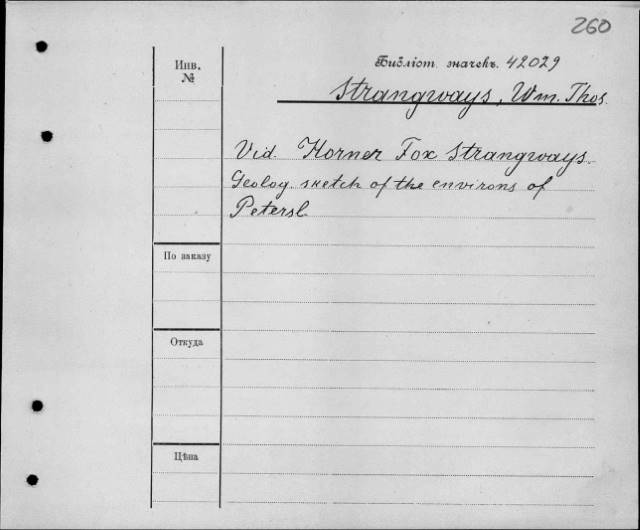 260
Инв. №
Библіот. значекъ 42029
Strangways, Wm. Thos.
Vid. Horner Fox Strangways.
Geolog. sketch of the environs of
Petersb.
По заказу
Откуда
Цѣна